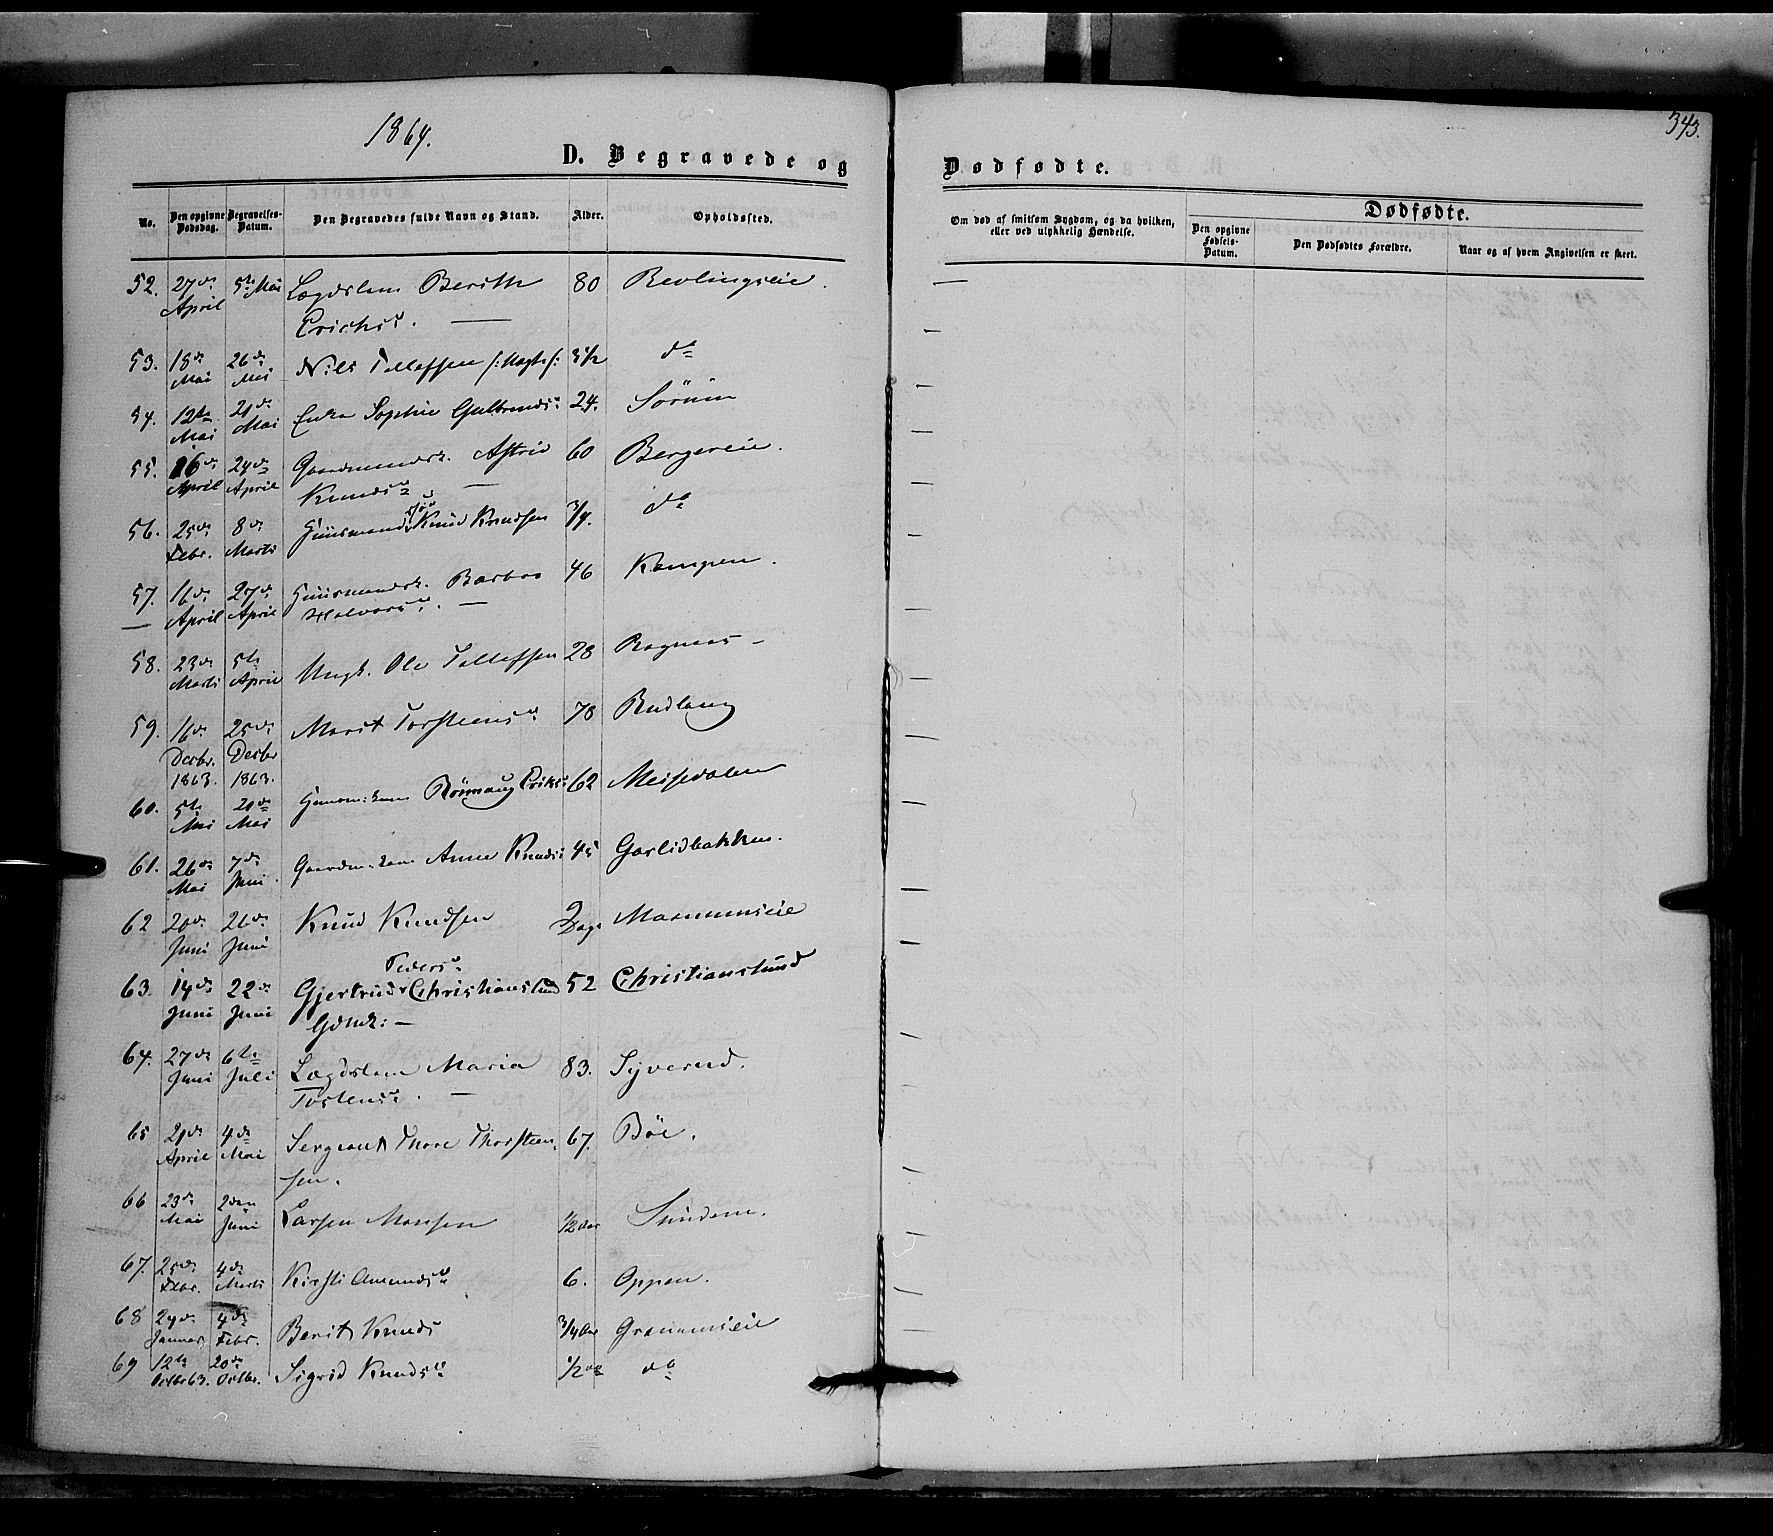 1864.
343.
D. Begravede og
Dødfødte.
No.
Den opgivne Dødsdag.
Begravelses-Datum.
Den Begravedes fulde Navn og Stand.
Alder.
Opholdssted.
Om død af smitsom Sygdom, og da hvilken, eller ved ulykkelig Hændelse.
Dødfødte.
Den opgivne Fødsels-Datum.
Den Dødfødtes Forældre.
Naar og af hvem Angivelsen er skeet.
52. 27de April 5te Mai Lægdslem Berith 80
Erichsd. —
53. 18de Mai 26de Mai Nils Tollefsen 3 1/2 do
54. 12te Mai 21de Mai Enke Sophie Gulbrandsd. 24. Sørum
55. 16de April 24de April Gaardmandsk. Astrid 60 Bergereie.
Knudsd. —
56. 25de Febr. 8de Marts Huusmands Knud Knudsen 3/4. do
57. 16de April 27de April Huusmandsk. Barbro 46 Kampen.
Halvorsd. —
58. 23de Marts 5te April Ungk. Ole Tollefsen 28 Ragnaas
59. 16de Decbr. 1863. 25de Decbr 1863. Marit Torsteensd. 78 Rudlang
60. 5te Mai 21de Mai Rønnaug Eriksd. 62 Meisdalen
61. 26de Mai 7de Juni. Anne Knudsd. 45 Garlidbakken.
62 20de Juni 26de Juni Knud Knudsen 2 Dage
Peders.
63. 14de Juni 22de Juni Gjertrud Christianslund 52 Christianslund
Gdmk: —
64. 27de Juni 6te Juli Lægdslem Maria 83. Syverud.
Tostensd. —
65 21de April 4de Mai Sergeant Thore Thorsteen- 67. Bøe.
sen.
66 23de Mai 2den Juni Larsen Monsen 1/2 Aar Sundem.
67. 25de Febr. 4de Marts Kirsti Amundsd. 6. Oppen.
68 24de Januar 4de Febr. Berit Knuds 3/4 Aar Granumseie
69 12te Octbr 63. 20de Octbr. Sigrid Knudsd. 1/2 do